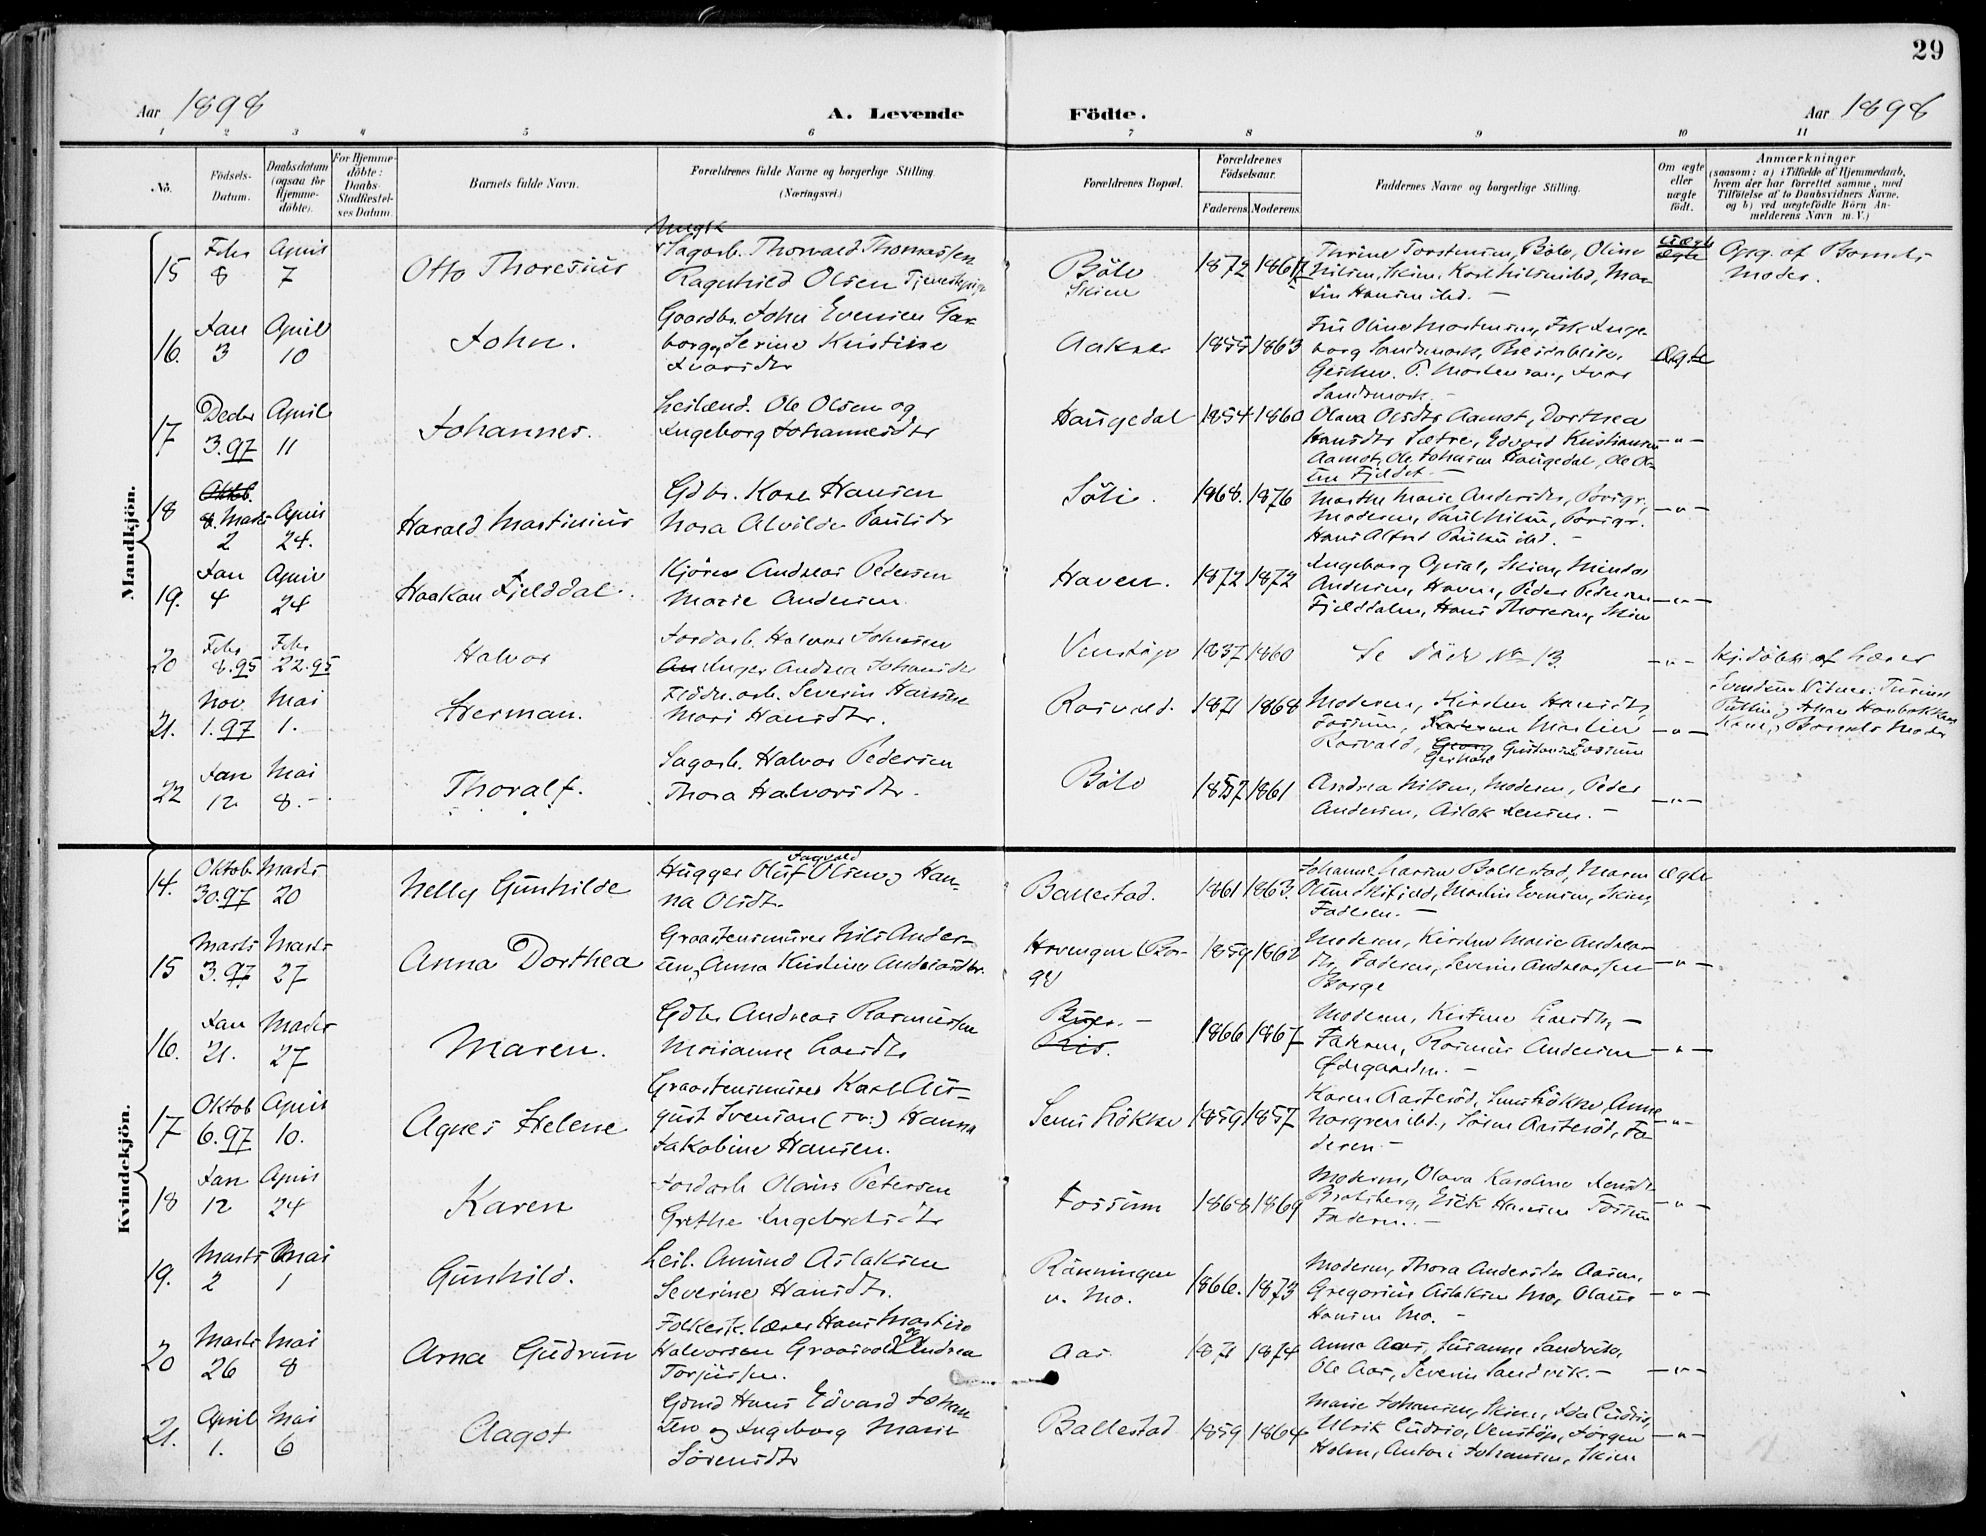 29
Aar 1898
A. Levende Födte.
Aar 1898
1 2 3 4 5 6 7 8 9 10 11
No.
Födsels-Datum.
Daabsdatum (ogsaa for Hjemme-döbte).
For Hjemme-döbte: Daabs-Stadfæstel-ses Datum.
Barnets fulde Navn.
Forældrenes fulde Navne og borgerlige Stilling. (Næringsvei.)
Forældrenes Bopæl.
Forældrenes Födselsaar.
Faderens Moderens
Faddernes Navne og borgerlige Stilling.
Om ægte eller uægte födt.
Anmærkninger
(saasom: a) i Tilfælde af Hjemmedaab, hvem der har forrettet samme, med Tilföielse af to Daabsvidners Navne. og b) ved uægtefödte Börn An-melderens Navn m. V.)
Mandkjön.
15 Febr 8 April 7
Otto Thoresius
Ungk
Sagarb. Thorvald Thomassen
Ragnhild Olsen Tjenestepige
Bölo
Skien
1872 1867
Nilsen, Skien, Karl Nilsen ibd, Mar-
tin Hansen ibd. —
uægte
Ægte
Opg. af Barnets
Moder.
16. Jan 3 April 10
John.
Gaardbr. John Evensen
Serine Kristine
1855 1863
Ægte
17 Decbr 3.97 April 11
Johannes.
Leilænd. Ole Olsen og
Ingeborg Johannesdtr
Haugedal
1854 1860
Olava Olsdtr Aamot, Dorthea
Hansdtr Sætre, Edvard Kristiansen
Aamot, Ole Johnsen Haugedal, Ole Ol-
sen Fjeldet —
— " —
18 Oktob. 8. Marts 2 April 24.
Harald Martinius
Gdbr. Karl Hansen
Nora Alvilde Paulsdr
Söli.
1868. 1876
Marthe Marie Andersdtr, Porsgr,
Moderen, Paul Nilsen, Porsgr.
Hans Alfred Paulsen ibd. —
— " —
19. Jan 4 April 24
Haakon Fjelddal.
Kjörer Andreas Pedersen
Marie Andersen
Haven.
1872 1872
Andersen, Haven, Peder Pedersen
Fjelddalen, Hans Thoresen, Skien
— " —
20 Febr 8.95 Febr 22.95
Halvor
Jordarb. Halvor Johnsen
Inger Andrea Johansdtr
Venstöp
1837 1860
Se Döde No 13
— " —
Hj. döbt af Lærer
21. Nov 1.97 Mai 1.
Herman.
Flödn.arb. Severin Hansen
Mari Hansdtr.
Rasvald.
1871 1868
Moderen, Kirsten Hansdtr,
Fossum, Martin
Rasvald, Georg Gustavsen Fossum
Gerhard
— " —
22 Jan 12 Mai 8. —
Thoralf.
Sagarb. Halvor Pedersen
Thora Halvorsdtr.
Bölo
1857 1861
Andrea Nilsen, Moderen, Peder
Andersen, Aslak Jensen. —
— " —
Kvindekjön.
14. Oktob. 30.97 Marts 20
Nelly Gunhilde
Hugger Oluf Olsen og Han-
na Olsdt.
Ballestad.
1861 1863.
Johanne Larsen Ballestad, Maren
Martin Evensen, Skien,
Faderen. —
ægte
15 Marts 3.97 Marts 27
Anna Dorthea
Graastensmurer Nils Anders-
sen, Anna Kristine Andreasdtr.
1859 1862
Moderen, Kirstine Marie Andreas-
dtr, Faderen, Severin Andreassen
Borge
— " —
16. Jan 21. Marts 27
Maren.
Gdbr. Andreas Rasmussen
Marianne Larsdtr
Buer. —
1866 1867
Moderen, Kirstine Larsdtr, —
Faderen, Rasmus Andersen
Ødegaarden. —
— " —
17 Oktob 6.97 April 10.
Agnes Helene
Graastensmurer Karl Au-
gust Svensson (sv.) Hanna
Jakobine Hansen.
Sems Lökke
1859 1857
Karen Aasteröd, Sems Lökke, Anne
Norgren ibd., Sören Aasteröd, Fa-
deren —
— " —
18 Jan 12 April 24
Karen
Jordarb Olaus Petersen
Grethe Ingebretsdtr
Fossum
1868 1869
Moderen, Olava Karoline Jensdtr
Bratsberg, Erik Hansen Fossum
Faderen. —
— " —
19. Marts 2 Mai 1
Gunhild.
Leil. Amund Aslaksen
Severine Hansdtr.
Rönningen
u. Mo.
1866. 1873
Moderen, Thora Andersdtr Aasen,
Gregorius Aslaksen Mo, Olaus
Hansen Mo. —
— " —
20 Marts 26 Mai 8
Arna Gudrun
Folkesk.lærer Hans Martin
Halvorsen Graasvold og Andrea
Torjussen.
Aas
1871 1874
Anna Aas, Susanne Sandvik,
Ole Aas, Severin Sandvik. —
— " —
21. April 1. Mai 6
Aagot
Gdmd Hans Edvard Johan
sen og Ingeborg Marie
Sörensdtr
Ballestad
1859 1864
Marie Johansen, Skien, Ida Cudrio,
Ulrik Cudrio, Venstöp, Jörgen
Holm, Anton Johansen, Skien
— " —